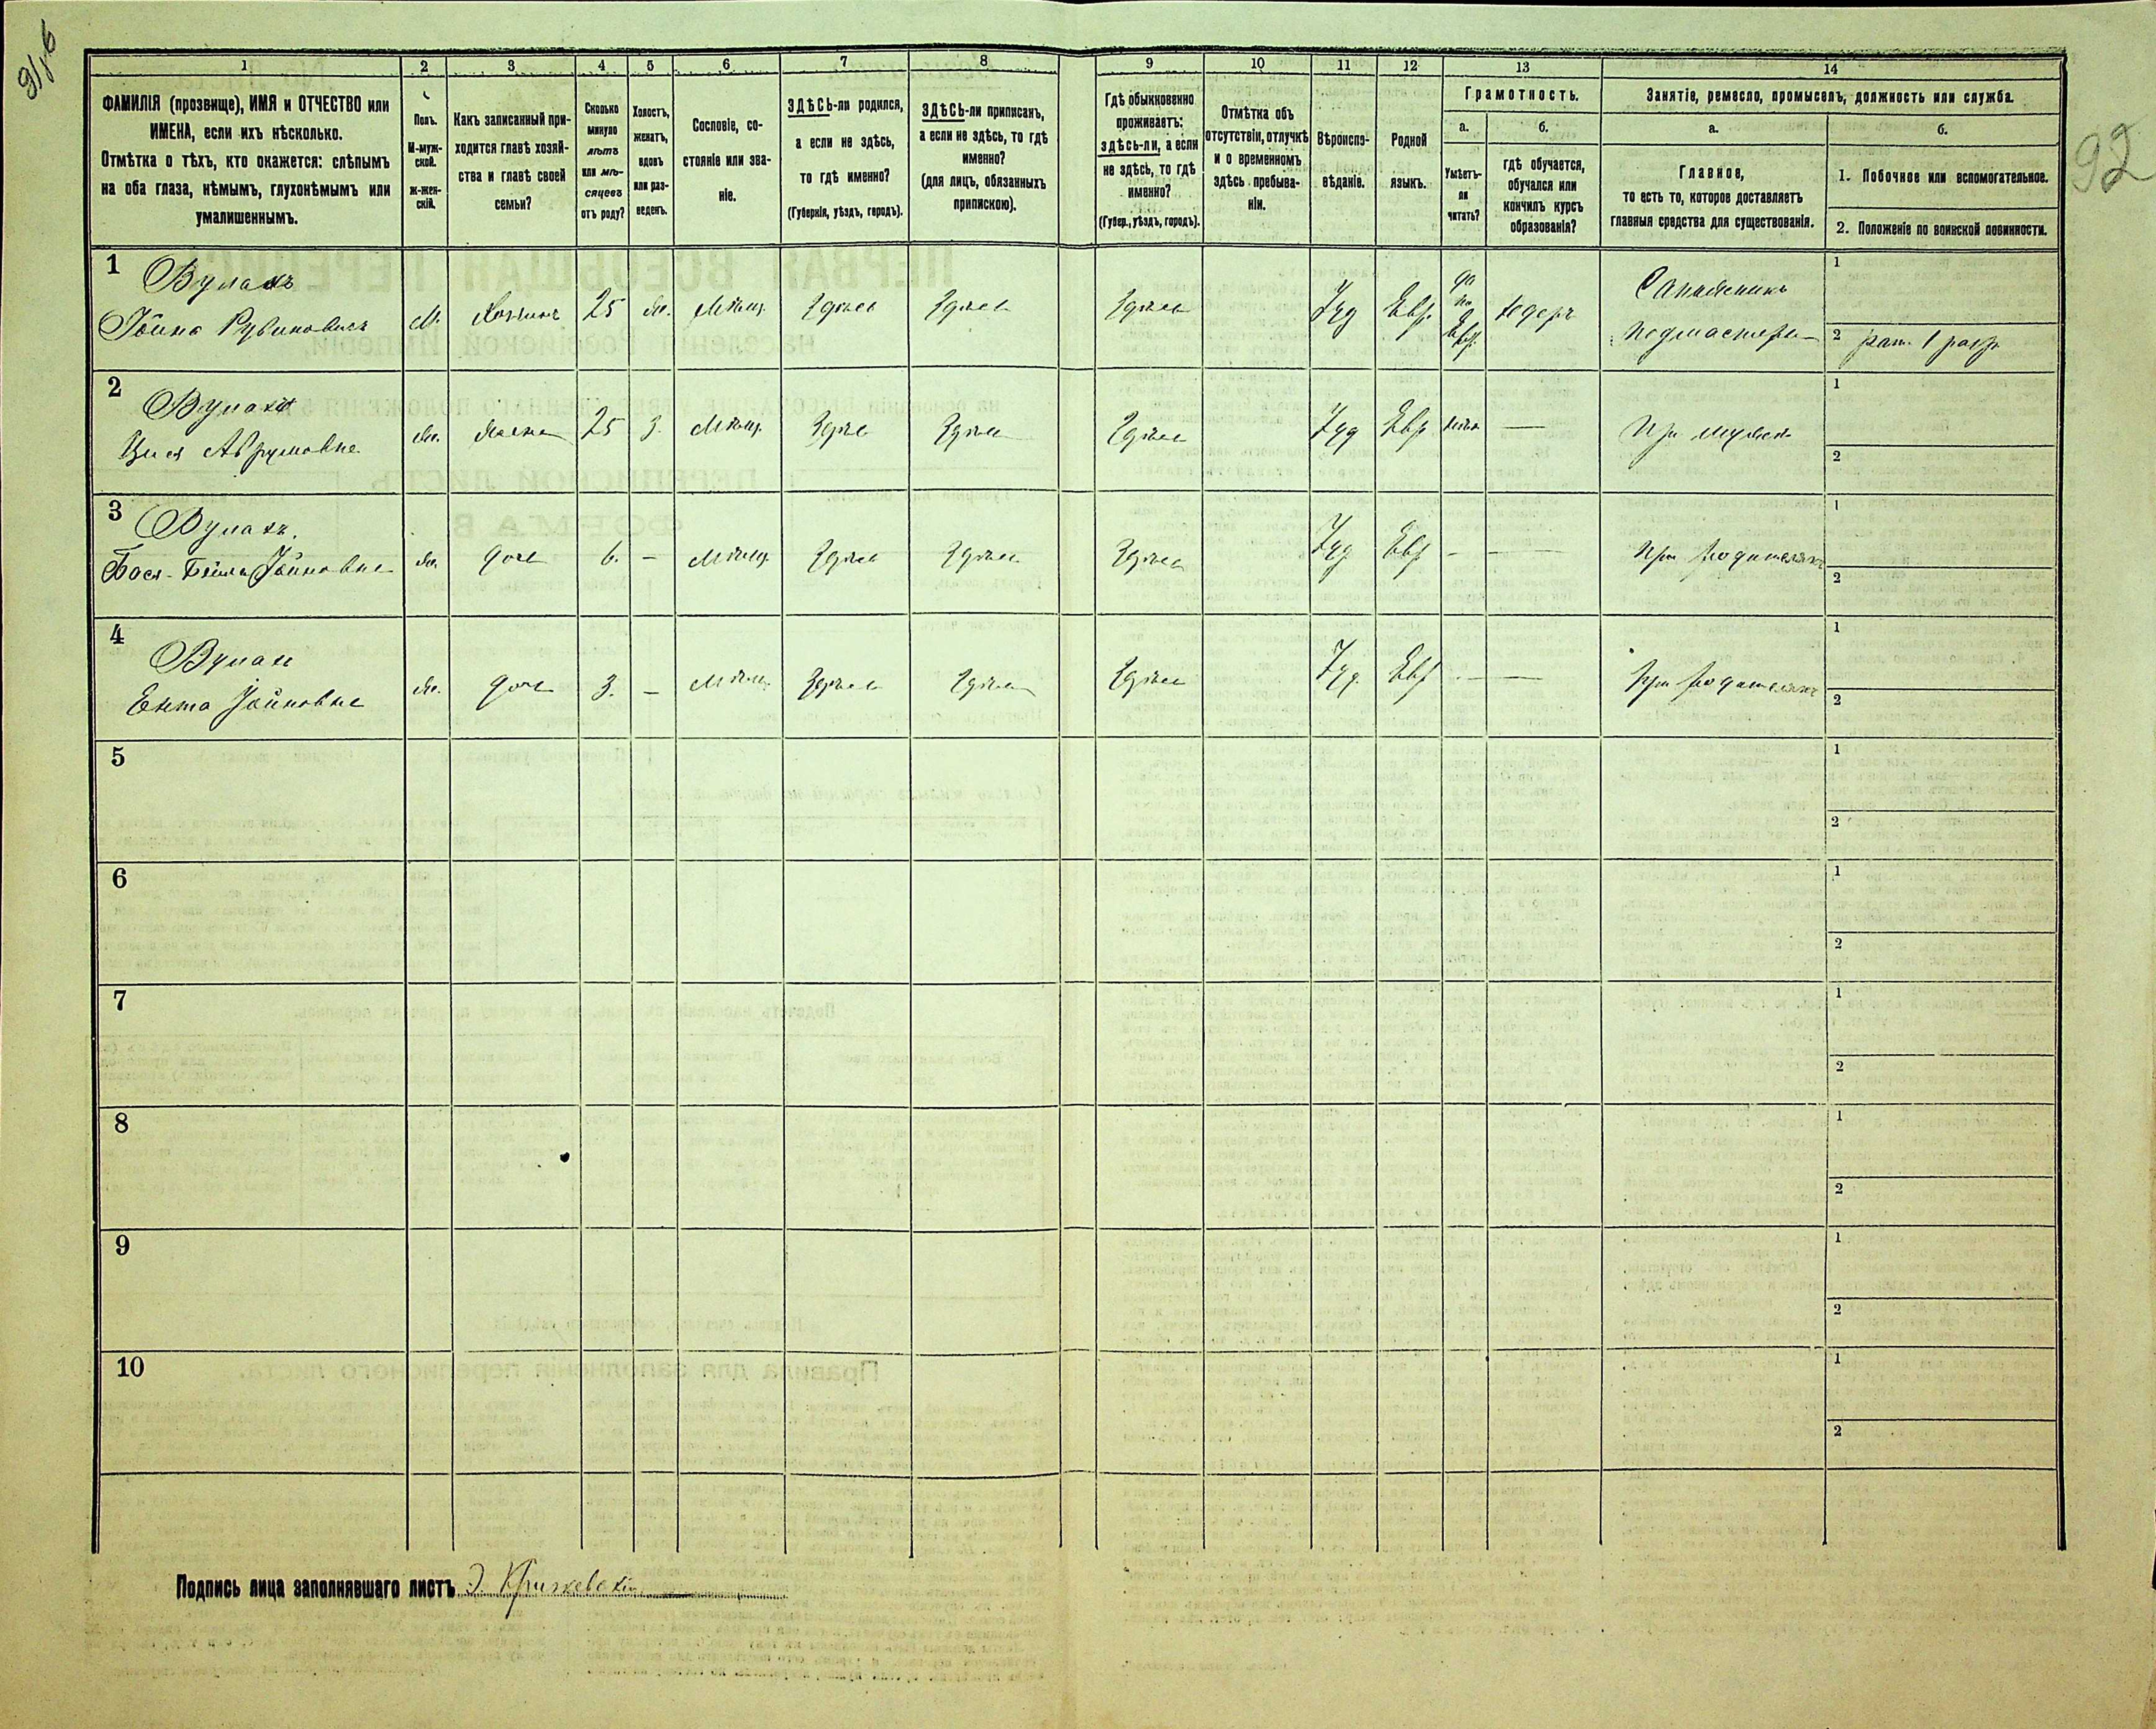 91 об
92
1
2
3
4
5
6
7
8
9
10
11
12
13
14
ФАМИЛІЯ (прозвище), ИМЯ и ОТЧЕСТВО или
ИМЕНА, если ихъ нѣсколько.
Отмѣтка о тѣхъ, кто окажется: слѣпымъ
на оба глаза, нѣмымъ, глухонѣмымъ или
умалишеннымъ.
Полъ.
М-муж-
ской.
ж-жен-
скій.
Какъ записанный при-
ходится главѣ хозяй-
ства и главѣ своей
семьи?
Сколько
минуло
лѣтъ
или мѣ-
сяцевъ
отъ роду?
Холостъ,
женатъ,
вдовъ
или раз-
веденъ.
Сословіе, со-
стояніе или зва-
ніе.
ЗДѢСЬ-ли родился,
а если не здѣсь,
то гдѣ именно?
(Губернія, уѣздъ, городъ).
ЗДѢСЬ-ли приписанъ,
а если не здѣсь, то гдѣ
именно?
(для лицъ, обязанныхъ
припискою).
Гдѣ обыкновенно
проживаетъ:
здѣсь-ли, а если
не здѣсь, то гдѣ
именно?
(Губер., уѣздъ, городъ).
Отмѣтка объ
отсутствіи, отлучкѣ
и о временномъ
здѣсь пребыва-
ніи.
Вѣроиспо-
вѣданіе.
Родной
языкъ.
Грамотность.
а.
б.
Умѣетъ-
ли
читать?
гдѣ обучается,
обучался или
кончилъ курсъ
образованія?
Занятіе, ремесло, промыселъ, должность или служба.
а.
б.
Главное,
то есть то, которое доставляетъ
главныя средства для существованія.
1. Побочное или вспомогательное.
2. Положеніе по воинской повинности.
1
Вулахъ
Іойна Рувиновичъ
М.
Хозяинъ
25
Ж.
Мѣщ.
Здѣсь
Здѣсь
Здѣсь
Іуд
Евр.
да
по
Евр.
хедеръ
Сапожникъ
подмастерье
1
2 рат. 1 разр.
2
Вулахъ
Цися Аврумовна
Ж.
Жена
25
З.
Мѣщ.
Здѣсь
Здѣсь
Здѣсь
Іуд
Евр
нѣтъ
—
При мужѣ
1
2
3
Вулахъ.
Бася-Бейла Іойновна
Ж.
дочь
6.
—
Мѣщ.
Здѣсь
Здѣсь
Здѣсь
Іуд
Евр
—
—
При родителяхъ
1
2
4
Вулах
Ента Іойновна
Ж.
дочь
3.
—
Мѣщ.
Здѣсь
Здѣсь
Здѣсь
Іуд.
Евр
—
—
При родителяхъ
1
2
5
1
2
6
1
2
7
1
2
8
1
2
9
1
2
10
1
2
Подпись лица заполнявшаго листъ Э. Крижевскій